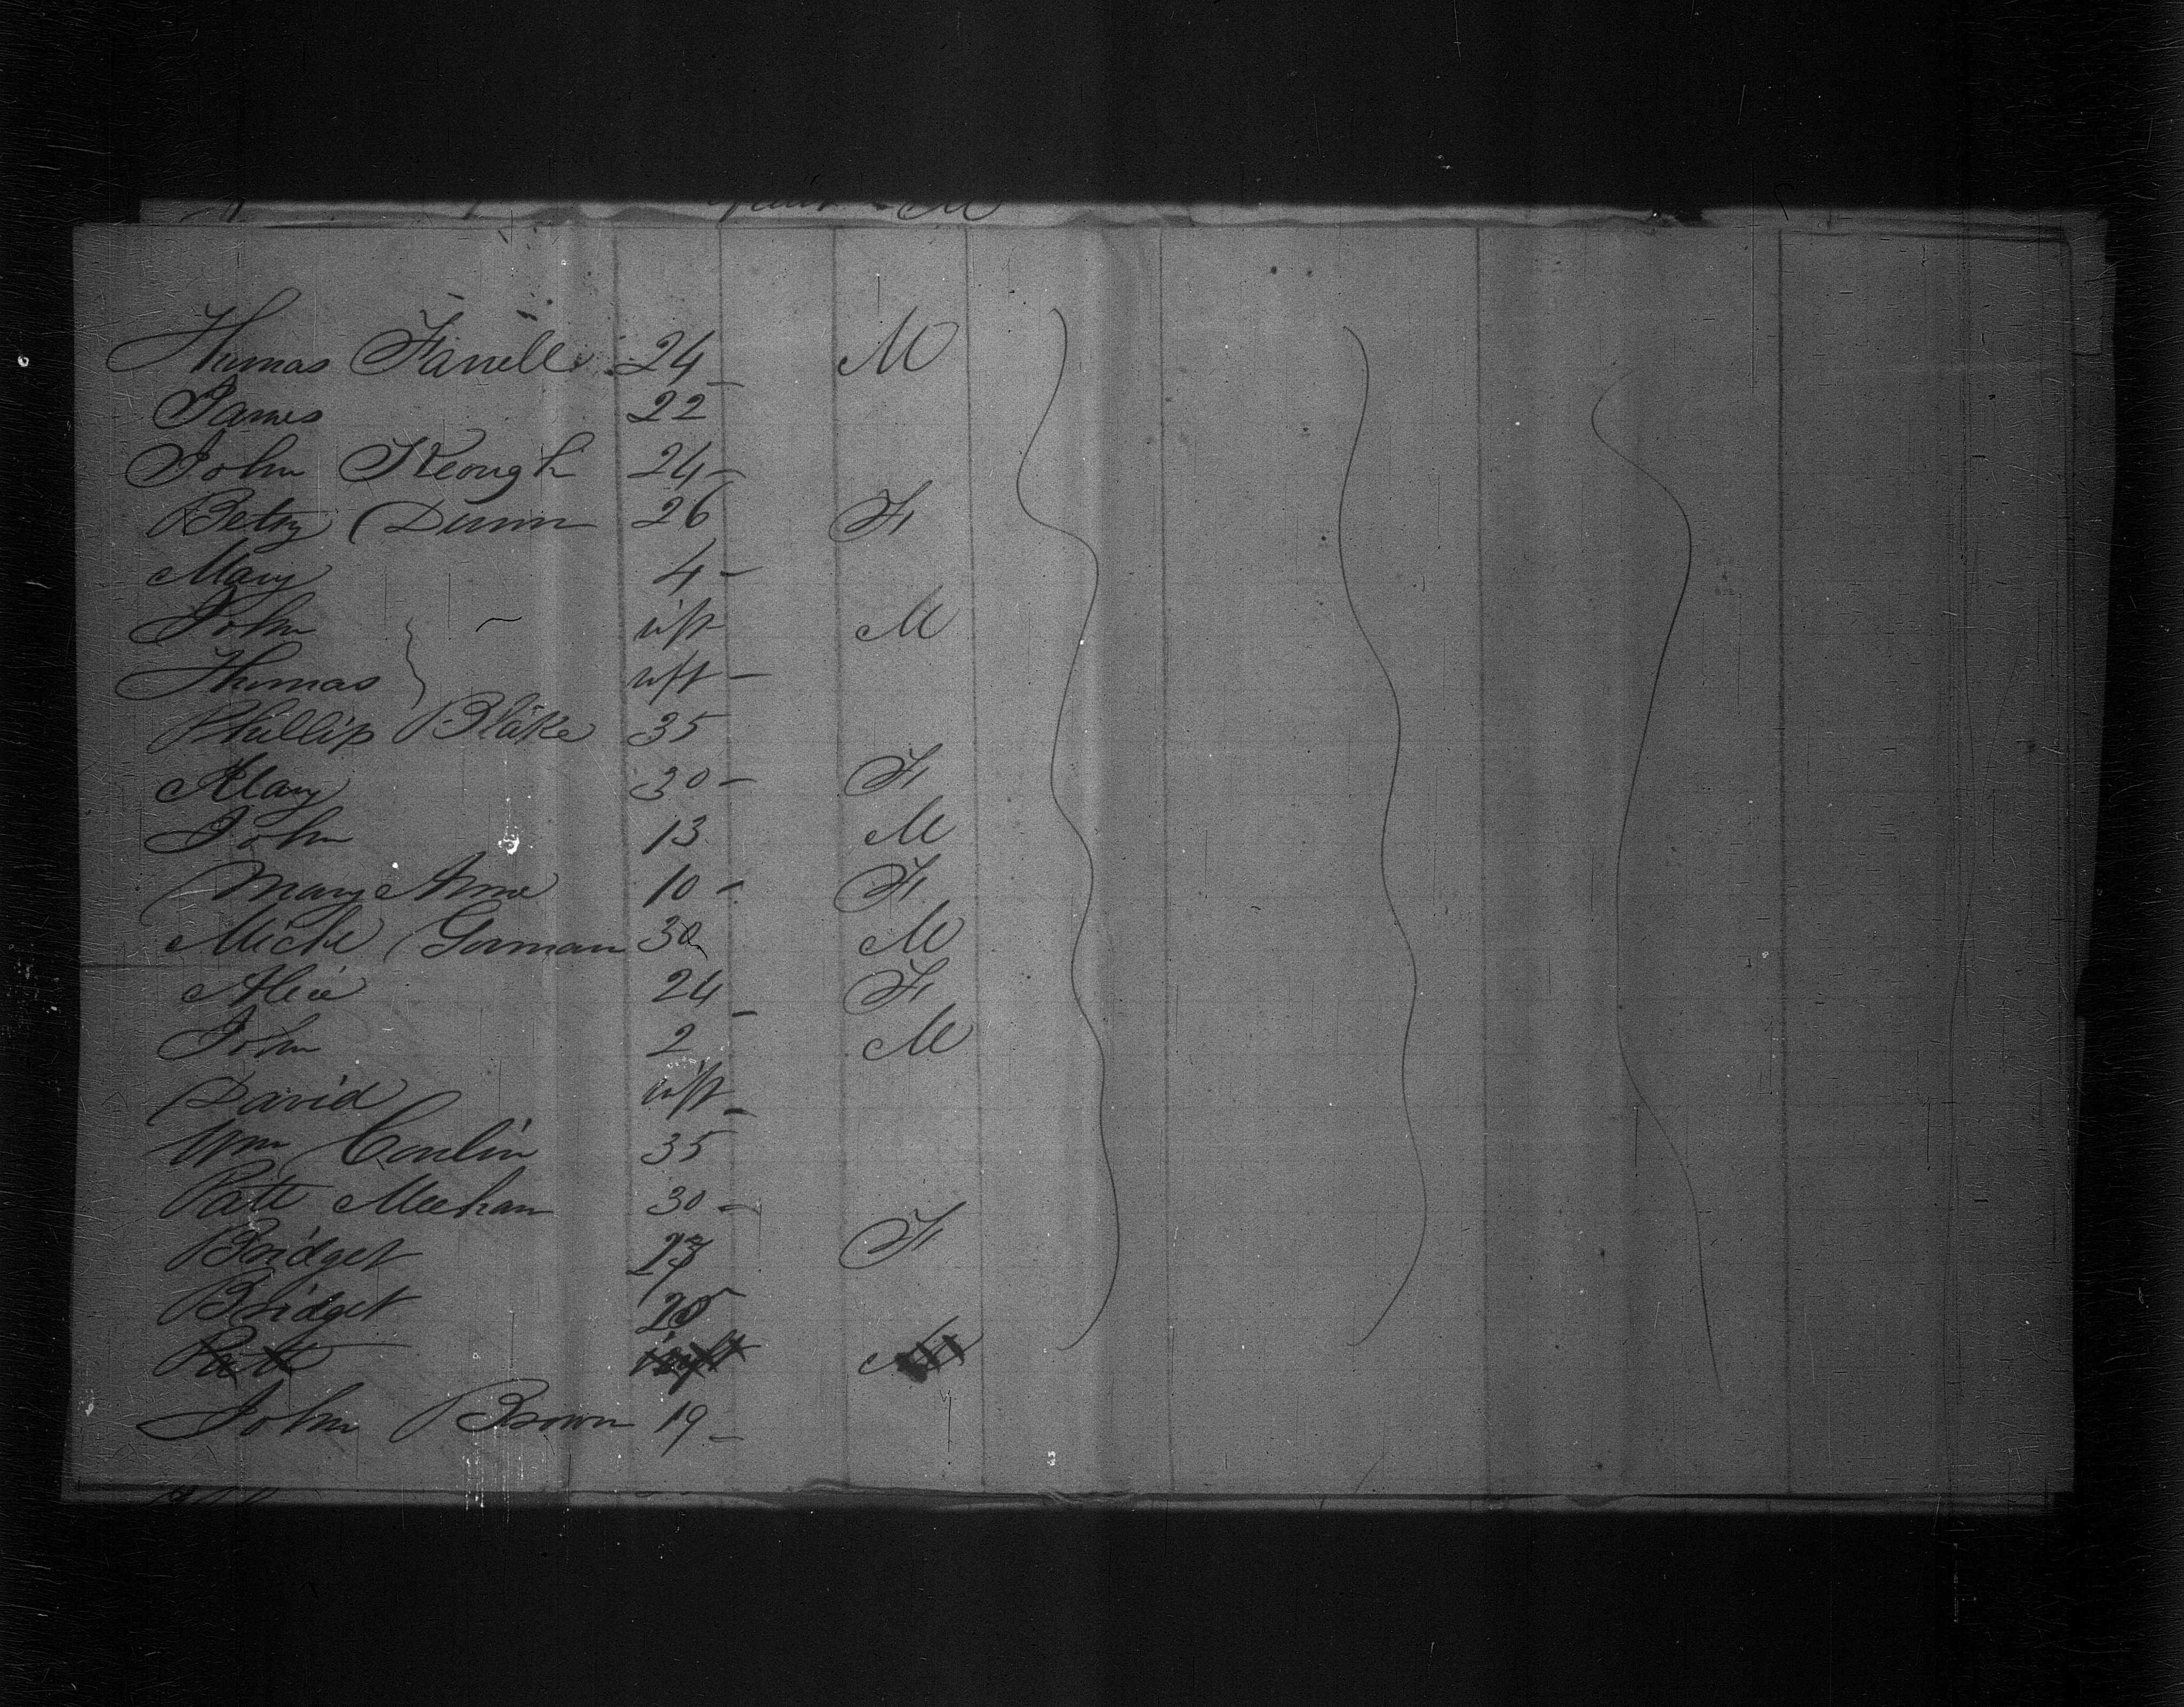 Thomas Farrell 24 - M
James 22
John Keough 24 -
Betsy Dunn 26 F
Mary 4 -
John inft M
Thomas inft -
Phillip Blake 35
Mary 30 - F
John 13 M
Mary Anne 10 - F
Michl Gorman 30 M
Alice 24 - F
John 2 M
David inft -
Wm Conlin 35
Patt Meehan 30 -
Bridget 27 F
Bridget
Patt inft M
John Brown 19 -